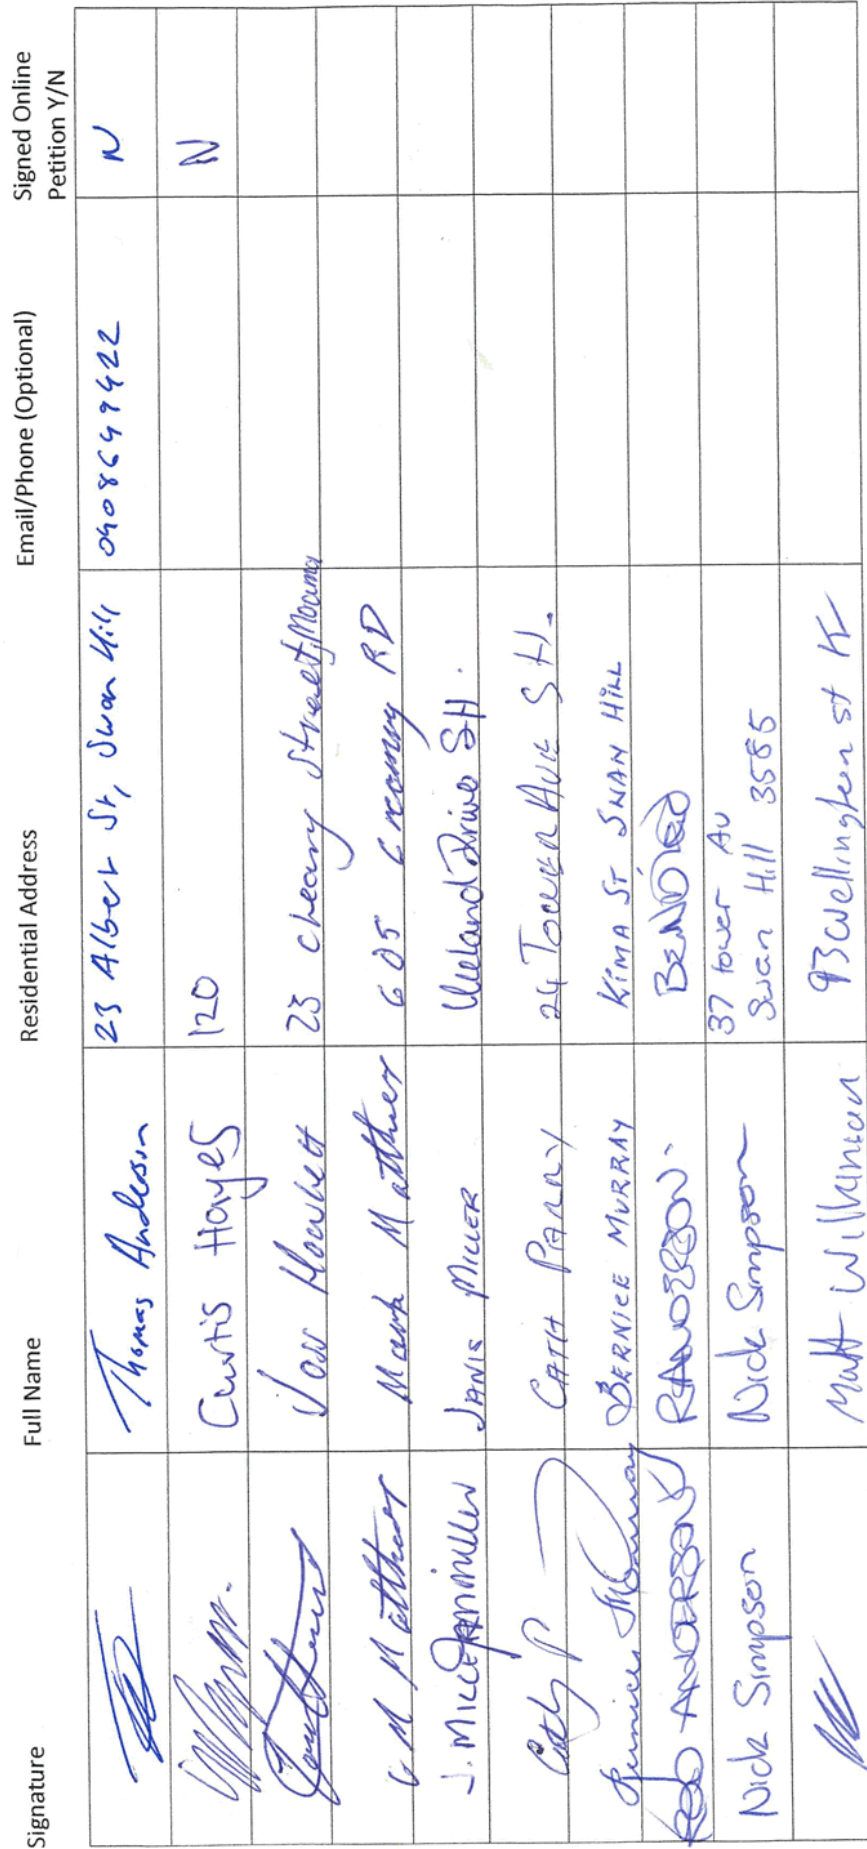 Signature Full Name Residential Address Email/Phone (Optional) Signed Online
Petition Y/N
Thomas Anderson 23 Albert St, Swan Hill 0408649422 N
Curtis Hayes 120 N
23 cheary Street, Moama
G M Matthews Mark Matthews 605 RD
J. MILLER JANIS MILLER Drive SH.
Cath P CATH PARRY 24 TOWER AVE S H.
Bernice Murray BERNICE MURRAY KIMA ST SWAN HILL
ROD ANDERSON R ANDERSON. BENDIGO
Nick Simpson Nick Simpson 37 tower AV
Swan Hill 3585
Matt Wilkinson 93 Wellington st K